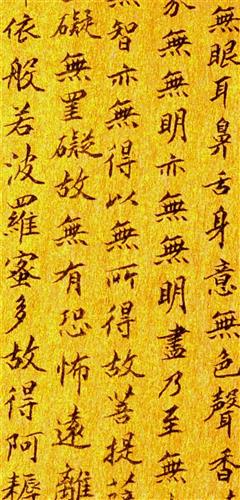 無眼耳鼻舌身意無色聲香
無無明亦無無明盡乃至無
智亦無得以無所得故菩提薩
礙無罣礙故無有恐怖遠離
依般若波羅蜜多故得阿耨